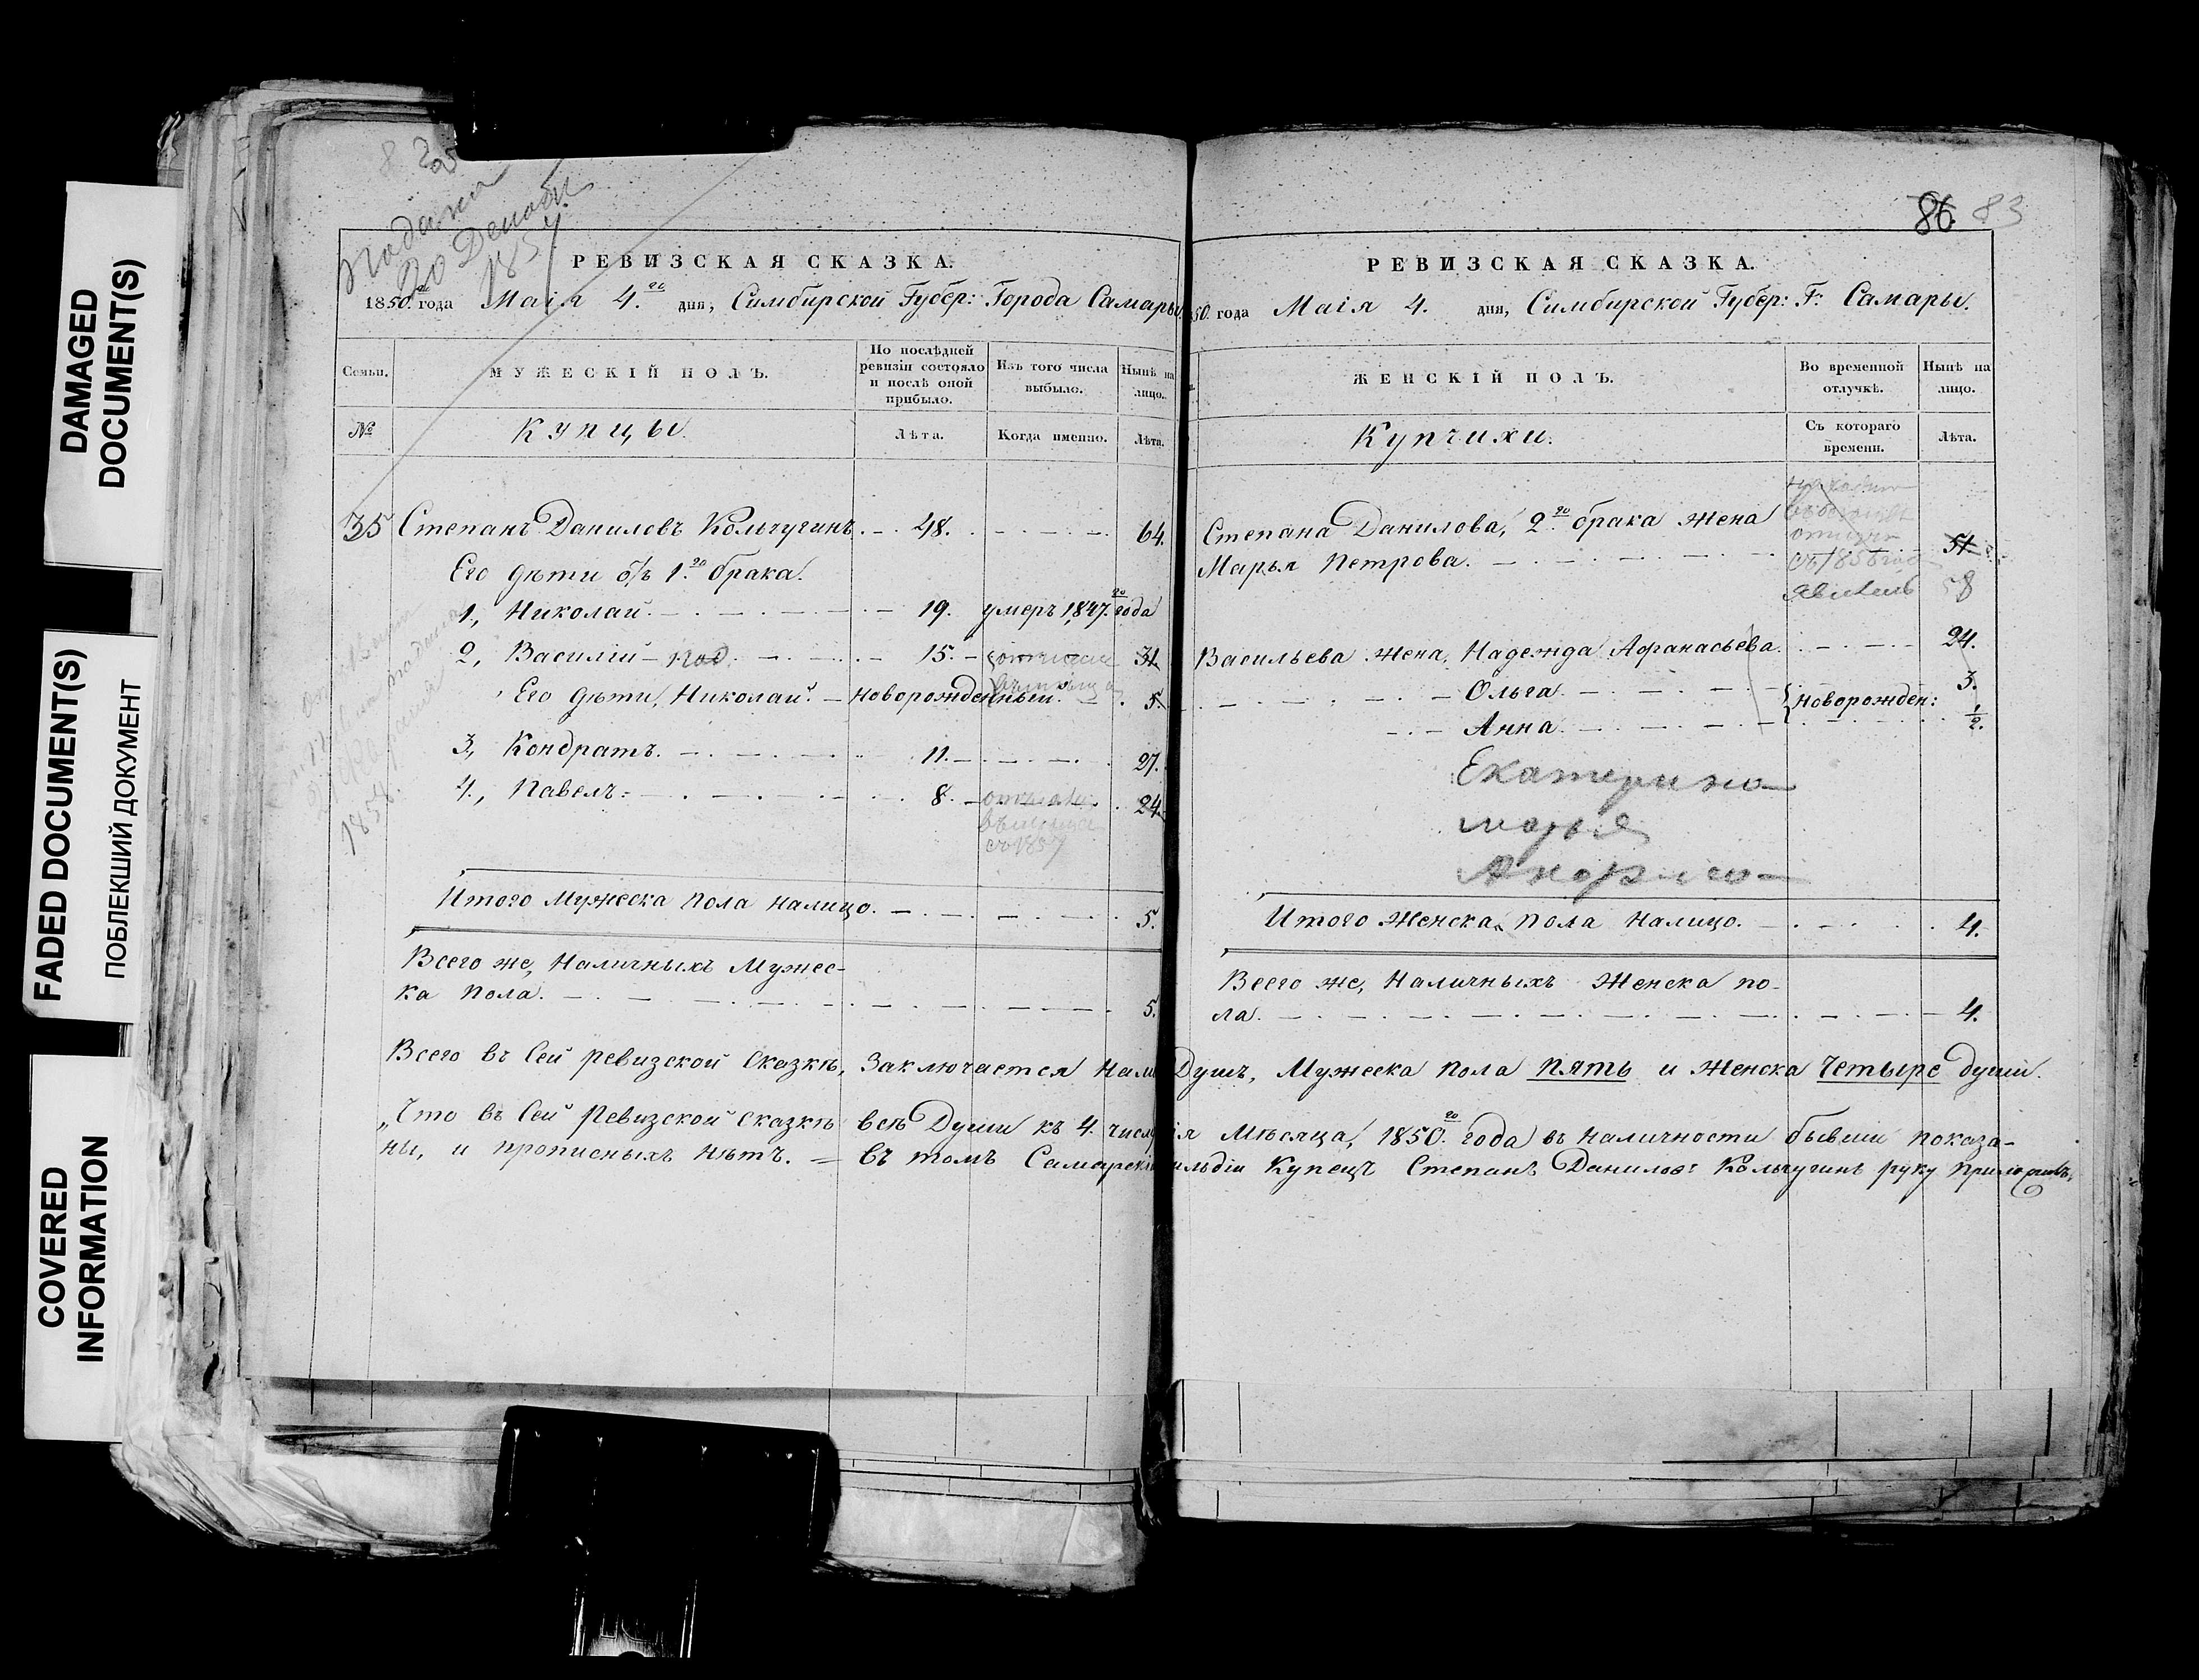 DAMAGED
DOCUMENT(S)
FADED DOCUMENT(S)
ПОБЛЕКШИЙ ДОКУМЕНТ
COVERED
INFORMATION
РЕВИЗСКАЯ СКАЗКА.
1850. года Маія 4.го дня, Симбирской Губер: Города Самары
Семьи.
МУЖЕСКІЙ ПОЛЪ.
По послѣдней ревизіи состояло и послѣ оной прибыло.
Изъ того числа выбыло.
Нынѣ на лицо.
№
Купцы.
Лѣта.
Когда именно.
Лѣта.
35 Степанъ Даниловъ Кольчугинъ. 48. 64.
Его дѣти 1.го брака.
1, Николай. 19. умеръ 1847.го года
2, Василій 15. 31
Его дѣти, Николай. Новорожденный. 5.
3, Кондратъ. 11. 27.
4, Павелъ: 8. 24.
1858.
Итого Мужеска пола налицо. 5.
Всего же, Наличныхъ Мужес-
ка пола. 5.
86. 83
РЕВИЗСКАЯ СКАЗКА.
50. года Маія 4. дня, Симбирской Губер: Г: Самары.
ЖЕНСКІЙ ПОЛЪ.
Во временной отлучкѣ.
Нынѣ на лицо.
Купчихи.
Съ котораго времени.
Лѣта.
Степана Данилова, 2.го брака жена
Марья Петрова. 51.
58
Васильева жена, Надежда Афанасьева. 24.
Ольга. 3.
новорожден:
Анна. 1/2.
Екатерина
Марья
Итого Женска пола налицо. 4.
Всего же, Наличныхъ Женска по-
ла. 4.
Всего въ Сей ревизской Сказкѣ, Заключается Нали Душъ, Мужеска пола пять и Женска Четыре души.
„Что въ Сей Ревизской сказкѣ всѣ Души къ 4. числу ія Мѣсяца, 1850.го года въ наличности бывши показа-
ны, и прописныхъ нѣтъ. = Въ томъ Самарскій ильдіи Купецъ Степанъ Даниловъ Кольчугинъ руку приложилъ.